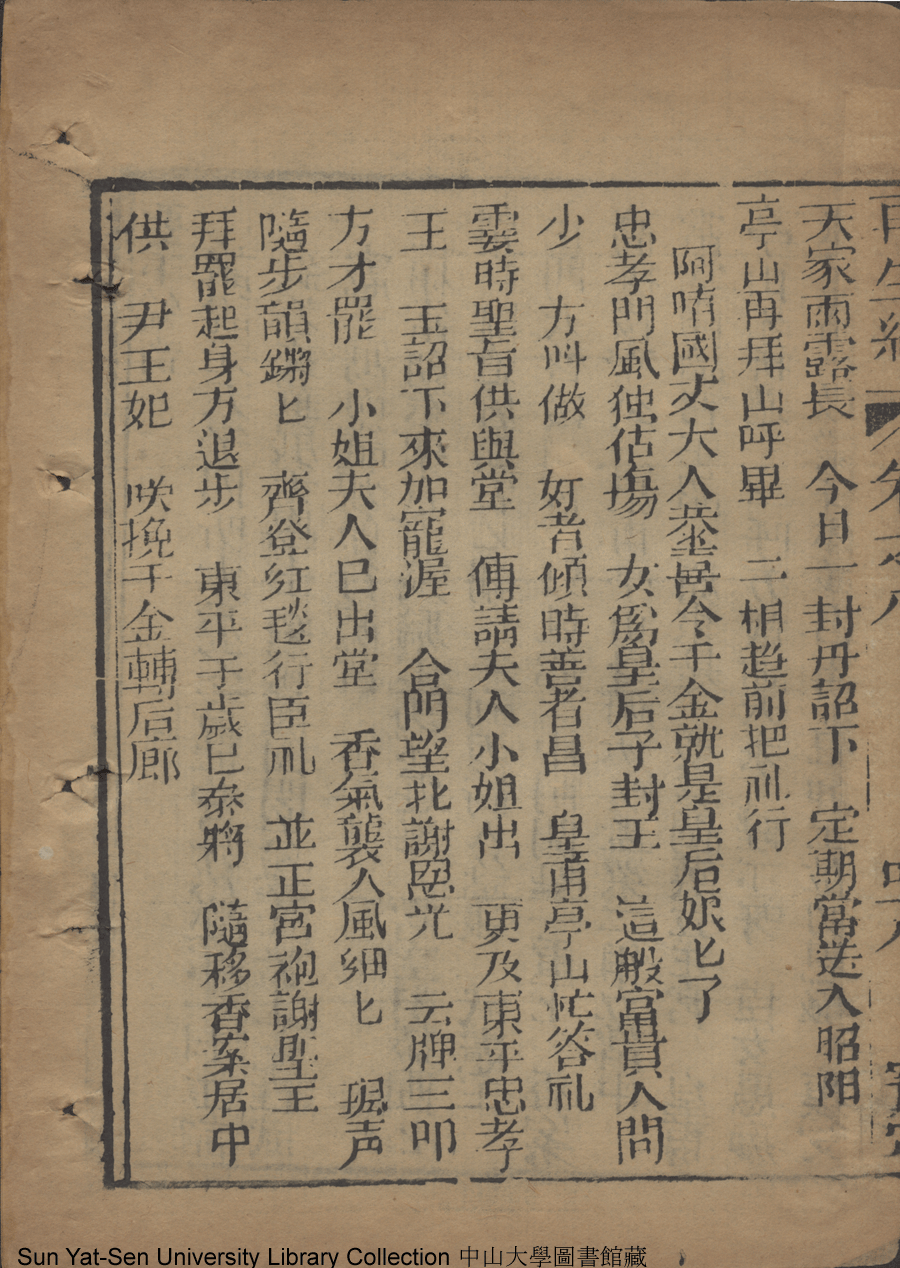 再生緣
天家雨露長　今日一封丹詔下　定期當送入昭阳
亭山再拜山呼畢　二相趋前把礼行
阿唷國丈大人恭喜令千金就是皇后娘匕了
忠孝門風独估塲　女爲皇后子封王　這般富貴人問
少　方叫做　好者傾時善者昌　皇甫亭山忙答礼
霎時聖旨供與堂　傳請夫人小姐出　更及東平忠孝
王　玉詔下來加寵渥　合門望北謝恩光　云牌三叩
方才罷　小姐夫人已出堂　香氣襲人風細匕　珮声
隨步韻鏘匕　齊登红毯行臣礼　並正宮袍謝聖王
拜罷起身方退步　東平千歲已泰將　隨移香案居中
供　尹王妃　挽千金轉后廊
Sun Yat-Sen University Library Collection 中山大學圖書館藏